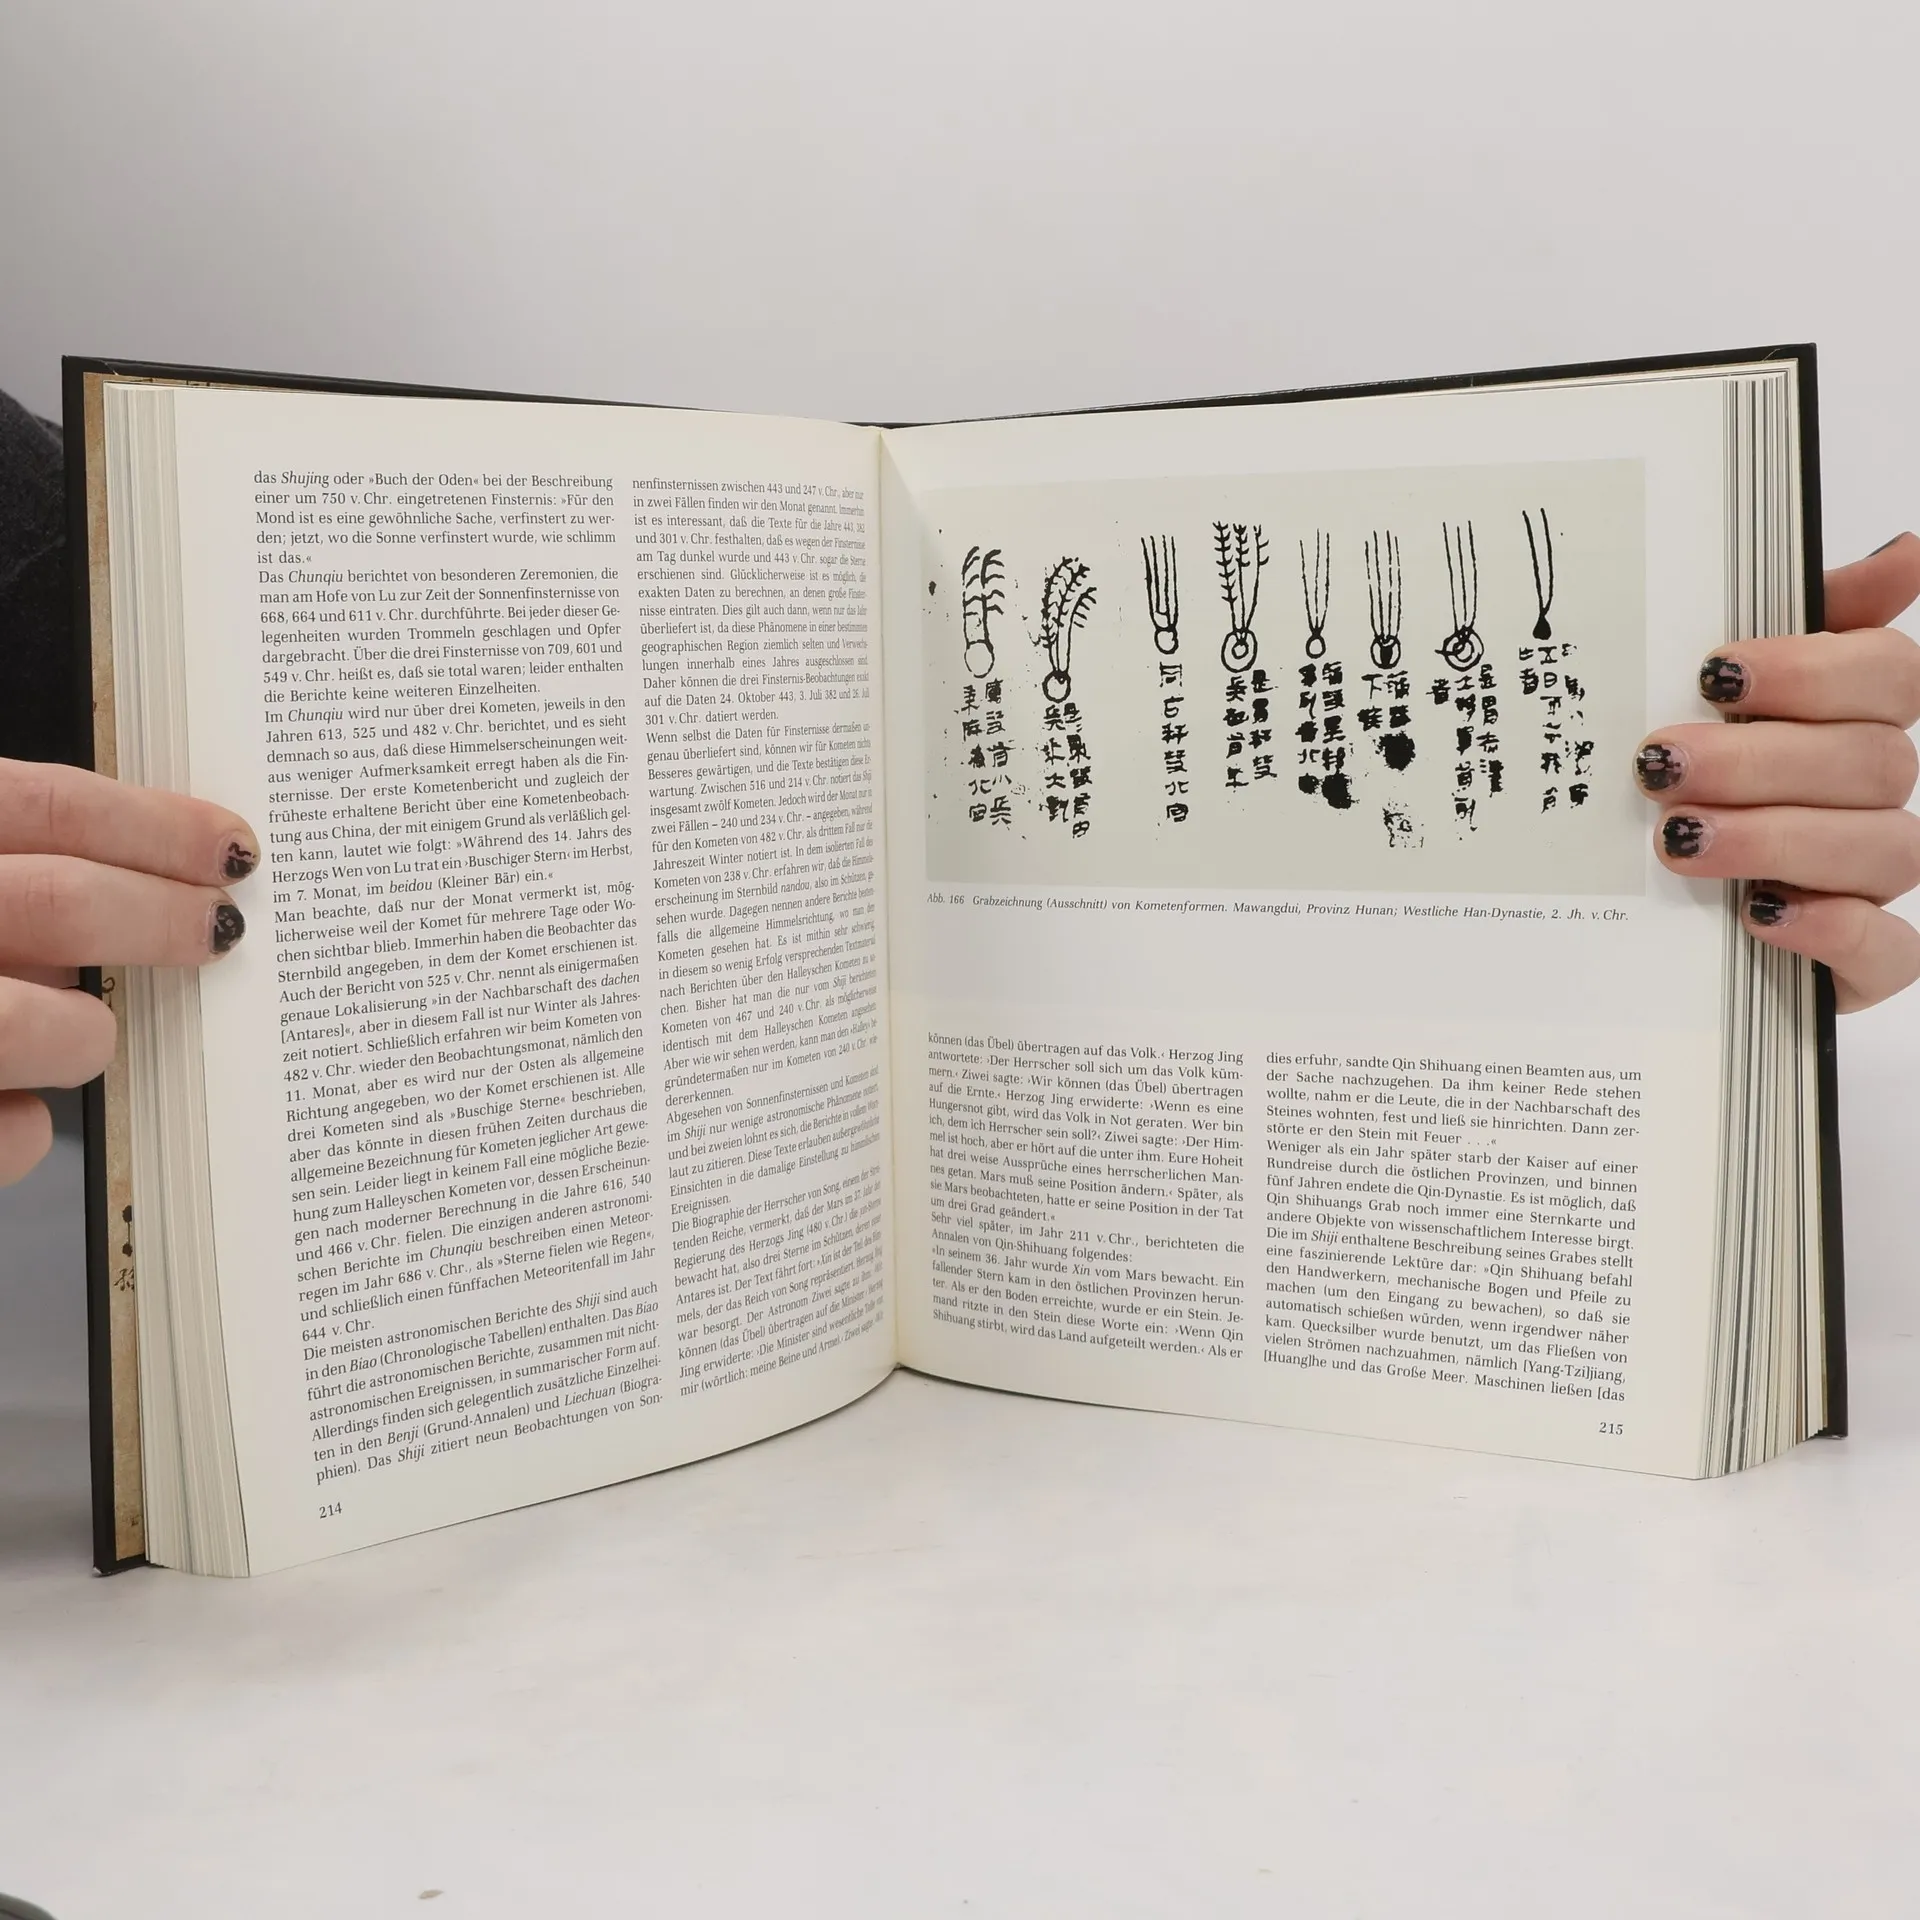 das Shujing oder »Buch der Oden« bei der Beschreibung
einer um 750 v. Chr. eingetretenen Finsternis: »Für den
Mond ist es eine gewöhnliche Sache, verfinstert zu wer-
den; jetzt, wo die Sonne verfinstert wurde, wie schlimm
ist das.«
Das Chunqiu berichtet von besonderen Zeremonien, die
man am Hofe von Lu zur Zeit der Sonnenfinsternisse von
668, 664 und 611 v. Chr. durchführte. Bei jeder dieser Ge-
legenheiten wurden Trommeln geschlagen und Opfer
dargebracht. Über die drei Finsternisse von 709, 601 und
549 v. Chr. heißt es, daß sie total waren; leider enthalten
die Berichte keine weiteren Einzelheiten.
Im Chunqiu wird nur über drei Kometen, jeweils in den
Jahren 613, 525 und 482 v. Chr. berichtet, und es sieht
demnach so aus, daß diese Himmelserscheinungen weit-
aus weniger Aufmerksamkeit erregt haben als die Fin-
sternisse. Der erste Kometenbericht und zugleich der
früheste erhaltene Bericht über eine Kometenbeobach-
tung aus China, der mit einigem Grund als verläßlich gel-
ten kann, lautet wie folgt: »Während des 14. Jahrs des
Herzogs Wen von Lu trat ein ›Buschiger Stern‹ im Herbst,
im 7. Monat, im beidou (Kleiner Bär) ein.«
Man beachte, daß nur der Monat vermerkt ist, mög-
licherweise weil der Komet für mehrere Tage oder Wo-
chen sichtbar blieb. Immerhin haben die Beobachter das
Sternbild angegeben, in dem der Komet erschienen ist.
Auch der Bericht von 525 v. Chr. nennt als einigermaßen
genaue Lokalisierung »in der Nachbarschaft des dachen
[Antares]«, aber in diesem Fall ist nur Winter als Jahres-
zeit notiert. Schließlich erfahren wir beim Kometen von
482 v. Chr. wieder den Beobachtungsmonat, nämlich den
11. Monat, aber es wird nur der Osten als allgemeine
Richtung angegeben, wo der Komet erschienen ist. Alle
drei Kometen sind als »Buschige Sterne« beschrieben,
aber das könnte in diesen frühen Zeiten durchaus die
allgemeine Bezeichnung für Kometen jeglicher Art gewe-
sen sein. Leider liegt in keinem Fall eine mögliche Bezie-
hung zum Halleyschen Kometen vor, dessen Erscheinun-
gen nach moderner Berechnung in die Jahre 616, 540
und 466 v. Chr. fielen. Die einzigen anderen astronomi-
schen Berichte im Chunqiu beschreiben einen Meteor-
regen im Jahr 686 v. Chr., als »Sterne fielen wie Regen«,
und schließlich einen fünffachen Meteoritenfall im Jahr
644 v. Chr.
Die meisten astronomischen Berichte des Shiji sind auch
in den Biao (Chronologische Tabellen) enthalten. Das Biao
führt die astronomischen Berichte, zusammen mit nicht-
astronomischen Ereignissen, in summarischer Form auf.
Allerdings finden sich gelegentlich zusätzliche Einzelhei-
ten in den Benji (Grund-Annalen) und Liechuan (Biogra-
phien). Das Shiji zitiert neun Beobachtungen von Son-
214
nenfinsternissen zwischen 443 und 247 v. Chr., aber nur
in zwei Fällen finden wir den Monat genannt. Immerhin
ist es interessant, daß die Texte für die Jahre 443, 382
und 301 v. Chr. festhalten, daß es wegen der Finsternisse
am Tag dunkel wurde und 443 v. Chr. sogar die Sterne
erschienen sind. Glücklicherweise ist es möglich, die
exakten Daten zu berechnen, an denen große Finster-
nisse eintraten. Dies gilt auch dann, wenn nur das Jahr
überliefert ist, da diese Phänomene in einer bestimmten
geographischen Region ziemlich selten und Verwechs-
lungen innerhalb eines Jahres ausgeschlossen sind.
Daher können die drei Finsternis-Beobachtungen exakt
auf die Daten 24. Oktober 443, 3. Juli 382 und 26. Juli
301 v. Chr. datiert werden.
Wenn selbst die Daten für Finsternisse dermaßen un-
genau überliefert sind, können wir für Kometen nichts
Besseres gewärtigen, und die Texte bestätigen diese Er-
wartung. Zwischen 516 und 214 v. Chr. notiert das Shiji
insgesamt zwölf Kometen. Jedoch wird der Monat nur in
zwei Fällen – 240 und 234 v. Chr. – angegeben, während
für den Kometen von 482 v. Chr. als drittem Fall nur die
Jahreszeit Winter notiert ist. In dem isolierten Fall des
Kometen von 238 v. Chr. erfahren wir, daß die Himmels-
erscheinung im Sternbild nandou, also im Schützen, ge-
sehen wurde. Dagegen nennen andere Berichte besten-
falls die allgemeine Himmelsrichtung, wo man den
Kometen gesehen hat. Es ist mithin sehr schwierig,
in diesem so wenig Erfolg versprechenden Textmaterial
nach Berichten über den Halleyschen Kometen zu su-
chen. Bisher hat man die nur vom Shiji berichteten
Kometen von 467 und 240 v. Chr. als möglicherweise
identisch mit dem Halleyschen Kometen angesehen.
Aber wie wir sehen werden, kann man den ›Halley‹ be-
gründetermaßen nur im Kometen von 240 v. Chr. wie-
dererkennen.
Abgesehen von Sonnenfinsternissen und Kometen sind
im Shiji nur wenige astronomische Phänomene notiert,
und bei zweien lohnt es sich, die Berichte in vollem Wort-
laut zu zitieren. Diese Texte erlauben außergewöhnliche
Einsichten in die damalige Einstellung zu himmlischen
Ereignissen.
Die Biographie der Herrscher von Song, einem der Strei-
tenden Reiche, vermerkt, daß der Mars im 37. Jahr der
Regierung des Herzogs Jing (480 v. Chr.) die xin-Sterne
bewacht hat, also drei Sterne im Schützen, deren einer
Antares ist. Der Text fährt fort: »Xin ist der Teil des Him-
mels, der das Reich von Song repräsentiert. Herzog Jing
war besorgt. Der Astronom Ziwei sagte zu ihm: ›Wir
können (das Übel) übertragen auf die Minister.‹ Herzog
Jing erwiderte: ›Die Minister sind wesentliche Teile von
mir (wörtlich: meine Beine und Arme).‹ Ziwei sagte: ›Wir
Abb. 166 Grabzeichnung (Ausschnitt) von Kometenformen. Mawangdui, Provinz Hunan; Westliche Han-Dynastie, 2. Jh. v. Chr.
können (das Übel) übertragen auf das Volk.‹ Herzog Jing
antwortete: ›Der Herrscher soll sich um das Volk küm-
mern.‹ Ziwei sagte: ›Wir können (das Übel) übertragen
auf die Ernte.‹ Herzog Jing erwiderte: ›Wenn es eine
Hungersnot gibt, wird das Volk in Not geraten. Wer bin
ich, dem ich Herrscher sein soll?‹ Ziwei sagte: ›Der Him-
mel ist hoch, aber er hört auf die unter ihm. Eure Hoheit
hat drei weise Aussprüche eines herrscherlichen Man-
nes getan. Mars muß seine Position ändern.‹ Später, als
sie Mars beobachteten, hatte er seine Position in der Tat
um drei Grad geändert.«
Sehr viel später, im Jahr 211 v. Chr., berichteten die
Annalen von Qin-Shihuang folgendes:
»In seinem 36. Jahr wurde Xin vom Mars bewacht. Ein
fallender Stern kam in den östlichen Provinzen herun-
ter. Als er den Boden erreichte, wurde er ein Stein. Je-
mand ritzte in den Stein diese Worte ein: ›Wenn Qin
Shihuang stirbt, wird das Land aufgeteilt werden.‹ Als er
dies erfuhr, sandte Qin Shihuang einen Beamten aus, um
der Sache nachzugehen. Da ihm keiner Rede stehen
wollte, nahm er die Leute, die in der Nachbarschaft des
Steines wohnten, fest und ließ sie hinrichten. Dann zer-
störte er den Stein mit Feuer . . .«
Weniger als ein Jahr später starb der Kaiser auf einer
Rundreise durch die östlichen Provinzen, und binnen
fünf Jahren endete die Qin-Dynastie. Es ist möglich, daß
Qin Shihuangs Grab noch immer eine Sternkarte und
andere Objekte von wissenschaftlichem Interesse birgt.
Die im Shiji enthaltene Beschreibung seines Grabes stellt
eine faszinierende Lektüre dar: »Qin Shihuang befahl
den Handwerkern, mechanische Bogen und Pfeile zu
machen (um den Eingang zu bewachen), so daß sie
automatisch schießen würden, wenn irgendwer näher
kam. Quecksilber wurde benutzt, um das Fließen von
vielen Strömen nachzuahmen, nämlich [Yang-Tzi]jiang,
[Huang]he und das Große Meer. Maschinen ließen [das
215